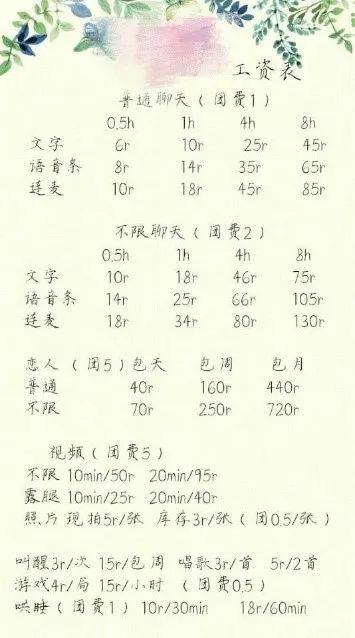 工资表
普通聊天（团费1）
0.5h 1h 4h 8h
文字 6r 10r 25r 45r
语音条 8r 14r 35r 65r
连麦 10r 18r 45r 85r
不限聊天（团费2）
0.5h 1h 4h 8h
文字 10r 18r 46r 75r
语音条 14r 25r 66r 105r
连麦 18r 34r 80r 130r
恋人（团5）包天 包周 包月
普通 40r 160r 440r
不限 70r 250r 720r
视频（团费5）
不限 10min/50r 20min/95r
露腿 10min/25r 20min/40r
照片 现拍5r/张 库存3r/张（团0.5/张）
叫醒3r/次 15r/包周 唱歌3r/首 5r/2首
游戏4r/局 15r/小时 （团费0.5）
哄睡（团费1）10r/30min 18r/60min